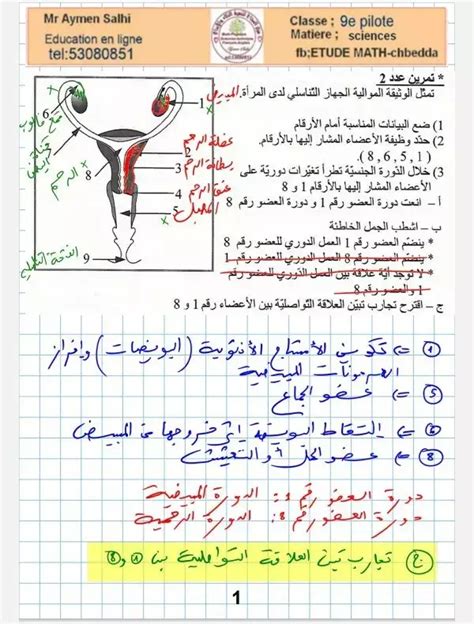 Mr Aymen Salhi
Education en ligne
tel:53080851
Classe ; 9e pilote
Matiere ; sciences
fb;ETUDE MATH-chbedda
* تمرين عدد 2
تمثل الوثيقة الموالية الجهاز التناسلي لدى المرأة.
1) ضع البيانات المناسبة أمام الأرقام
2) حدّد وظيفة الأعضاء المشار إليها بالأرقام.
(1 ,5 ,6 ,8)
3) خلال الدّورة الجنسيّة تطرأ تغيّرات دوريّة على
الأعضاء المشار إليها بالأرقام 1 و 8
أ – انعت دورة العضو رقم 1 و دورة العضو رقم 8
ب – اشطب الجمل الخاطئة
* ينضّم العضو رقم 1 العمل الدوري للعضو رقم 8
* ينضّم العضو رقم 8 العمل الدوري للعضو رقم 1
* لا توجد أيّة علاقة بين العمل الدّوري للعضو رقم
1 والعضو رقم 8
ج – اقترح تجارب تبيّن العلاقة التواصليّة بين الأعضاء رقم 1 و 8
المبيض
1
6
عضلة الرحم
2
بطانة الرحم
3
عنق الرحم
4
المهبل
5
الرحم
8
9
① => تكوين الأمشاج الأنثوية (البويضات) وإفراز
الهرمونات المبيضية
⑤ => عضو الجماع
⑥ => التقاط البويضة إثر خروجها من المبيض
⑧ => عضو الحمل أو التعشيش
دورة العضو رقم 1: الدورة المبيضية
دورة العضو رقم 8: الدورة الرحمية
ج) تجارب تبين العلاقة التواصلية بين 1 و 8
1